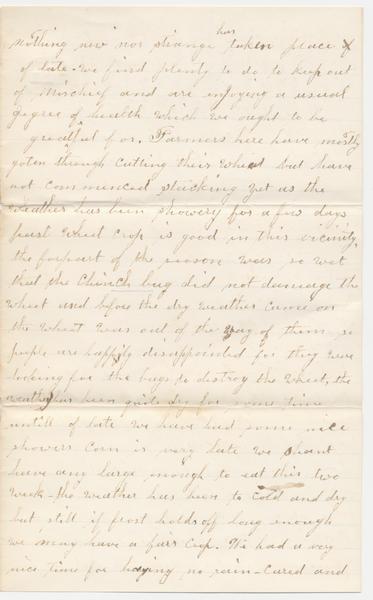 has
nothing new nor strange taken place
of late. We find plenty to do to keep out
of mischief and are enjoying a usual
degree of health which we ought to be
greatful for. Farmers here have mostly
goten through cutting their wheat but have
not commenced stacking yet as the
weather has been showery for a few days
past wheat crop is good in this vicinity,
the forpart of the season was so wet
that the Chinch bug did not damage the
wheat and before the dry weather came on
the wheat was out of the way of them so
people are happily disappointed for they were
looking for the bugs to destroy the wheat, the
weather has been quite dry for some time
untill of late we have had some nice
showers corn is very late we shant
have any large enough to eat this two
week - the weather has been to cold and dry
but still if frost holds off long enough
we may have a fair crop. We had a very
nice time for haying no rain - cured and